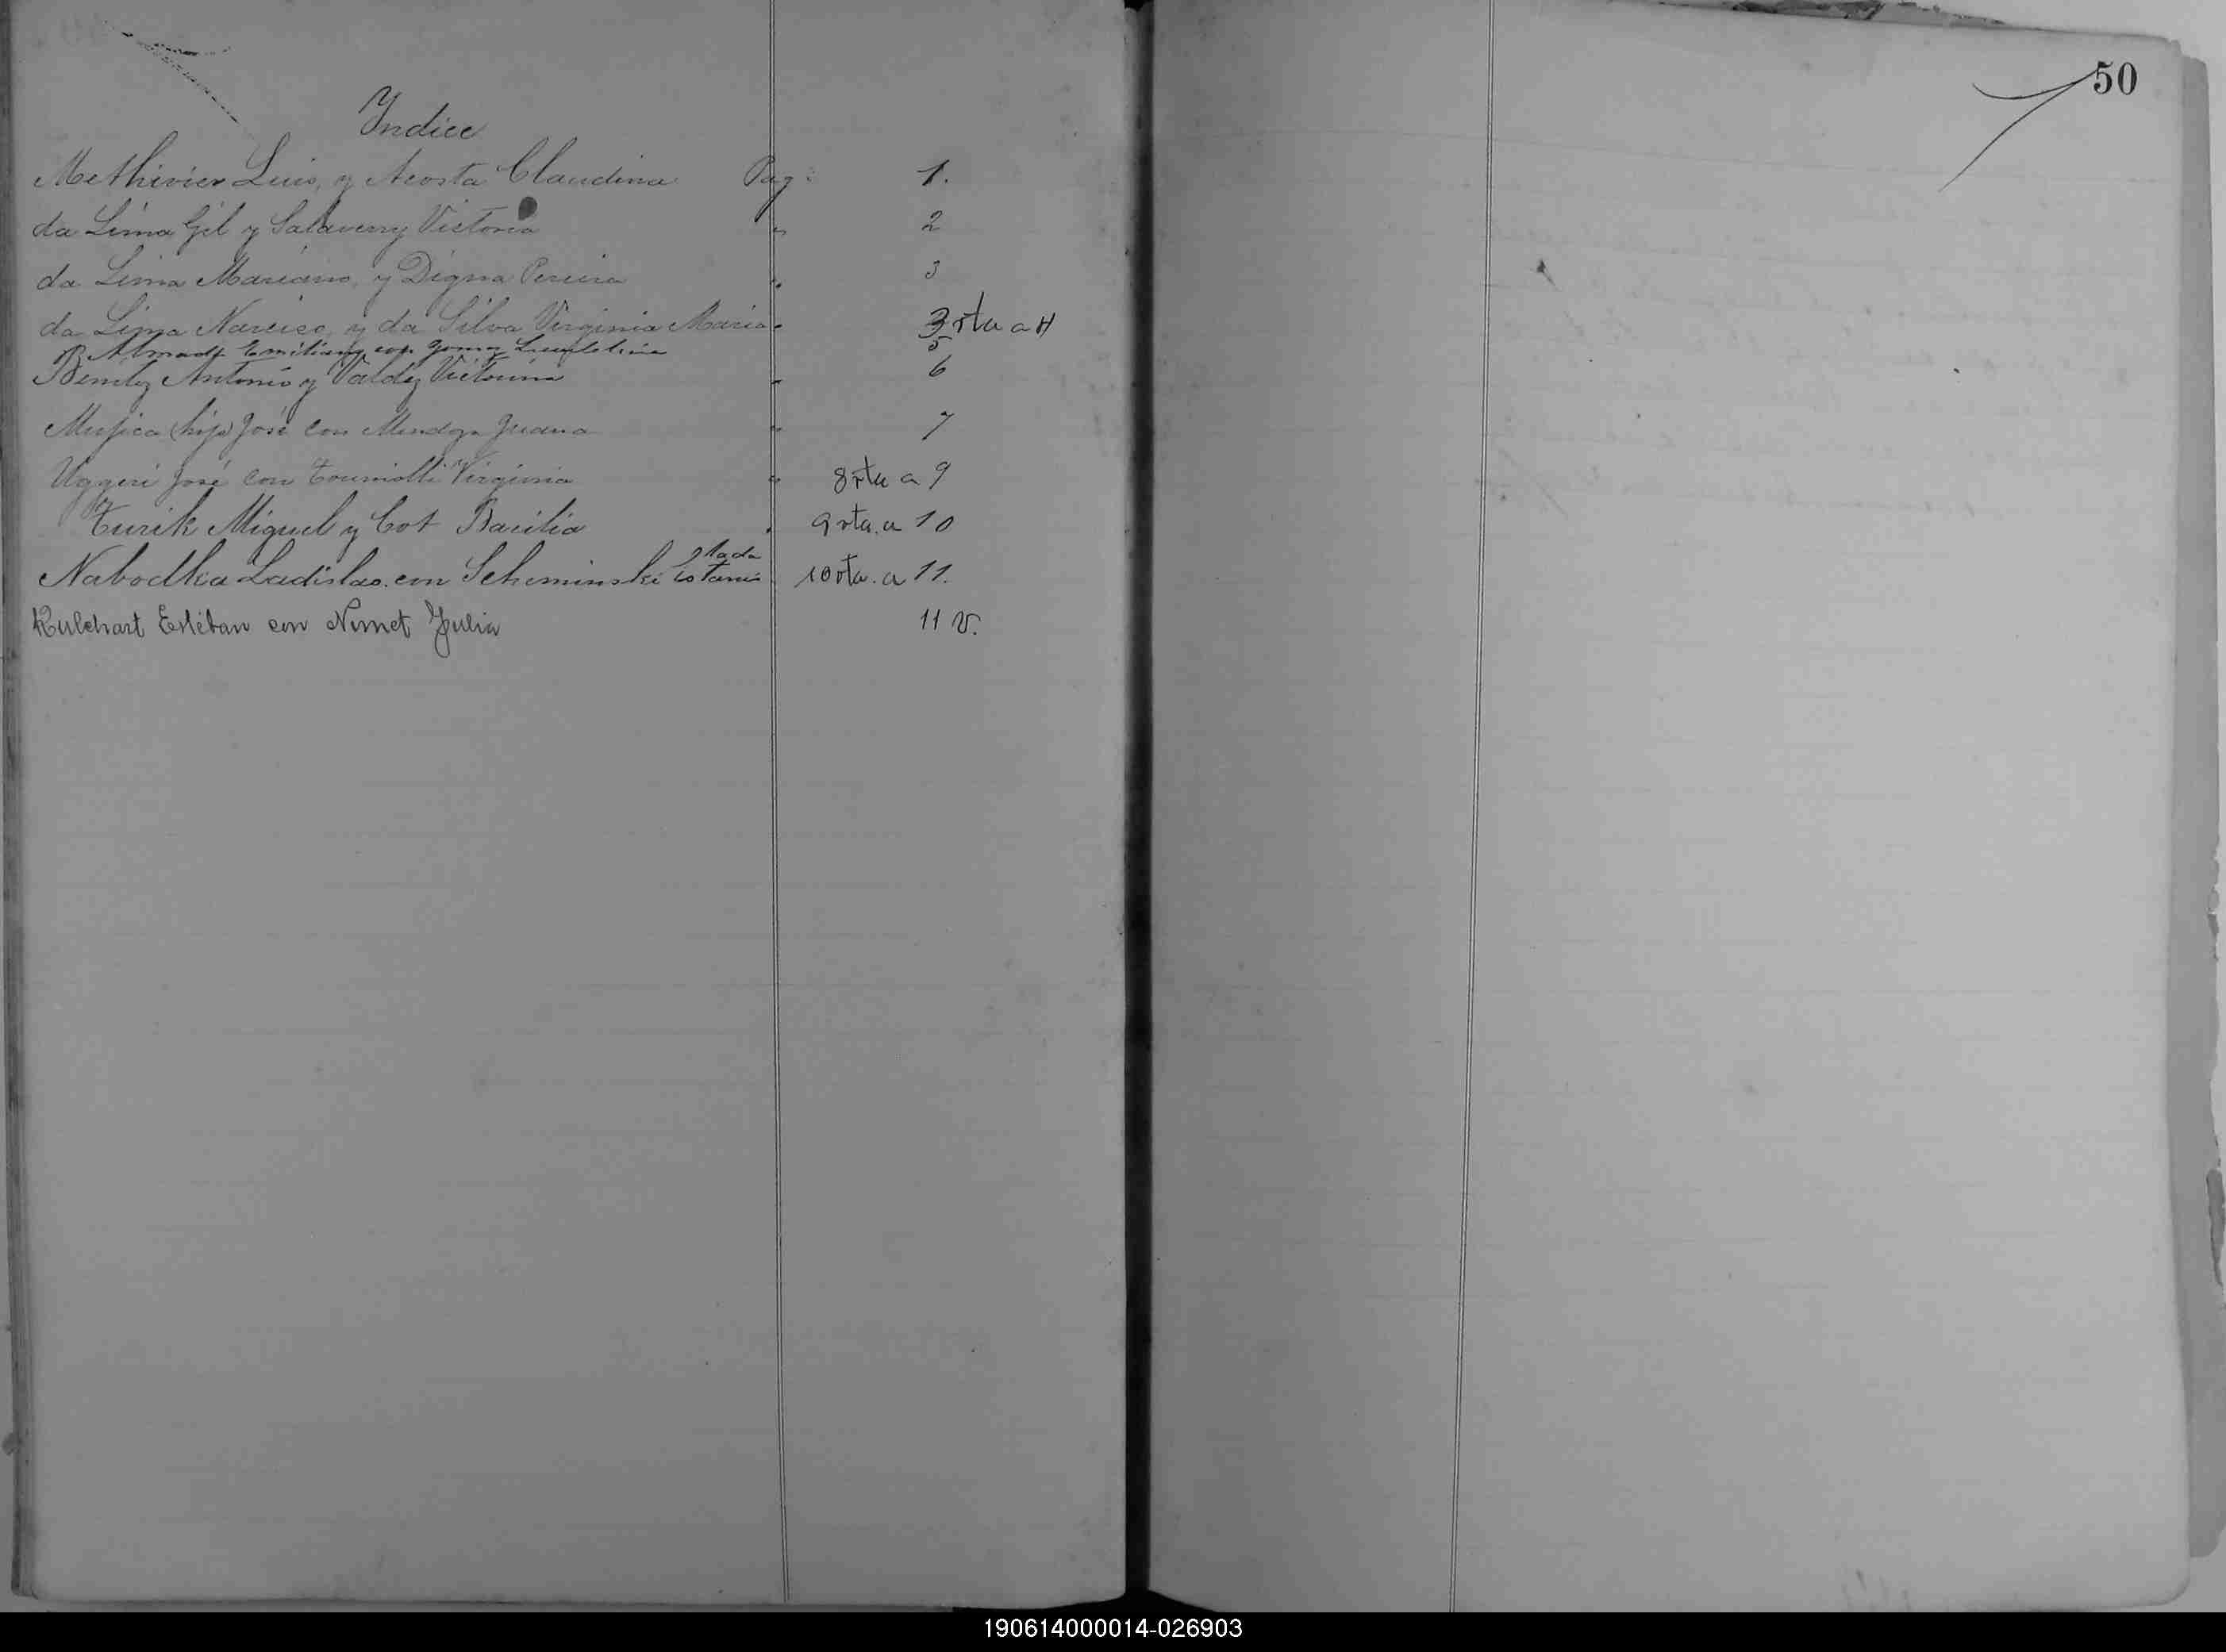 Indice
Methivier Luis, y Acosta Claudina Pag: 1.
da Lima Gil y Salaverry Victoria " 2
da Lima Mariano, y Digna Pereira " 3
da Lima Narciso, y da Silva Virginia Maria " 3 vta a 4
Almada Emiliano con Gomez 5
Benitez Antonio y Valdez Victorina " 6
Mujica (hijo) José con Mendoza Juana " 7
Uggeri José con Virginia " 8 vta a 9
Turik Miguel y Cot Basilia " 9 vta. a 10
Nabodka Ladislao con Scheminski 10 vta. a 11.
Kulchart Estéban con Nimet Julia 11 V.
50
190614000014-026903